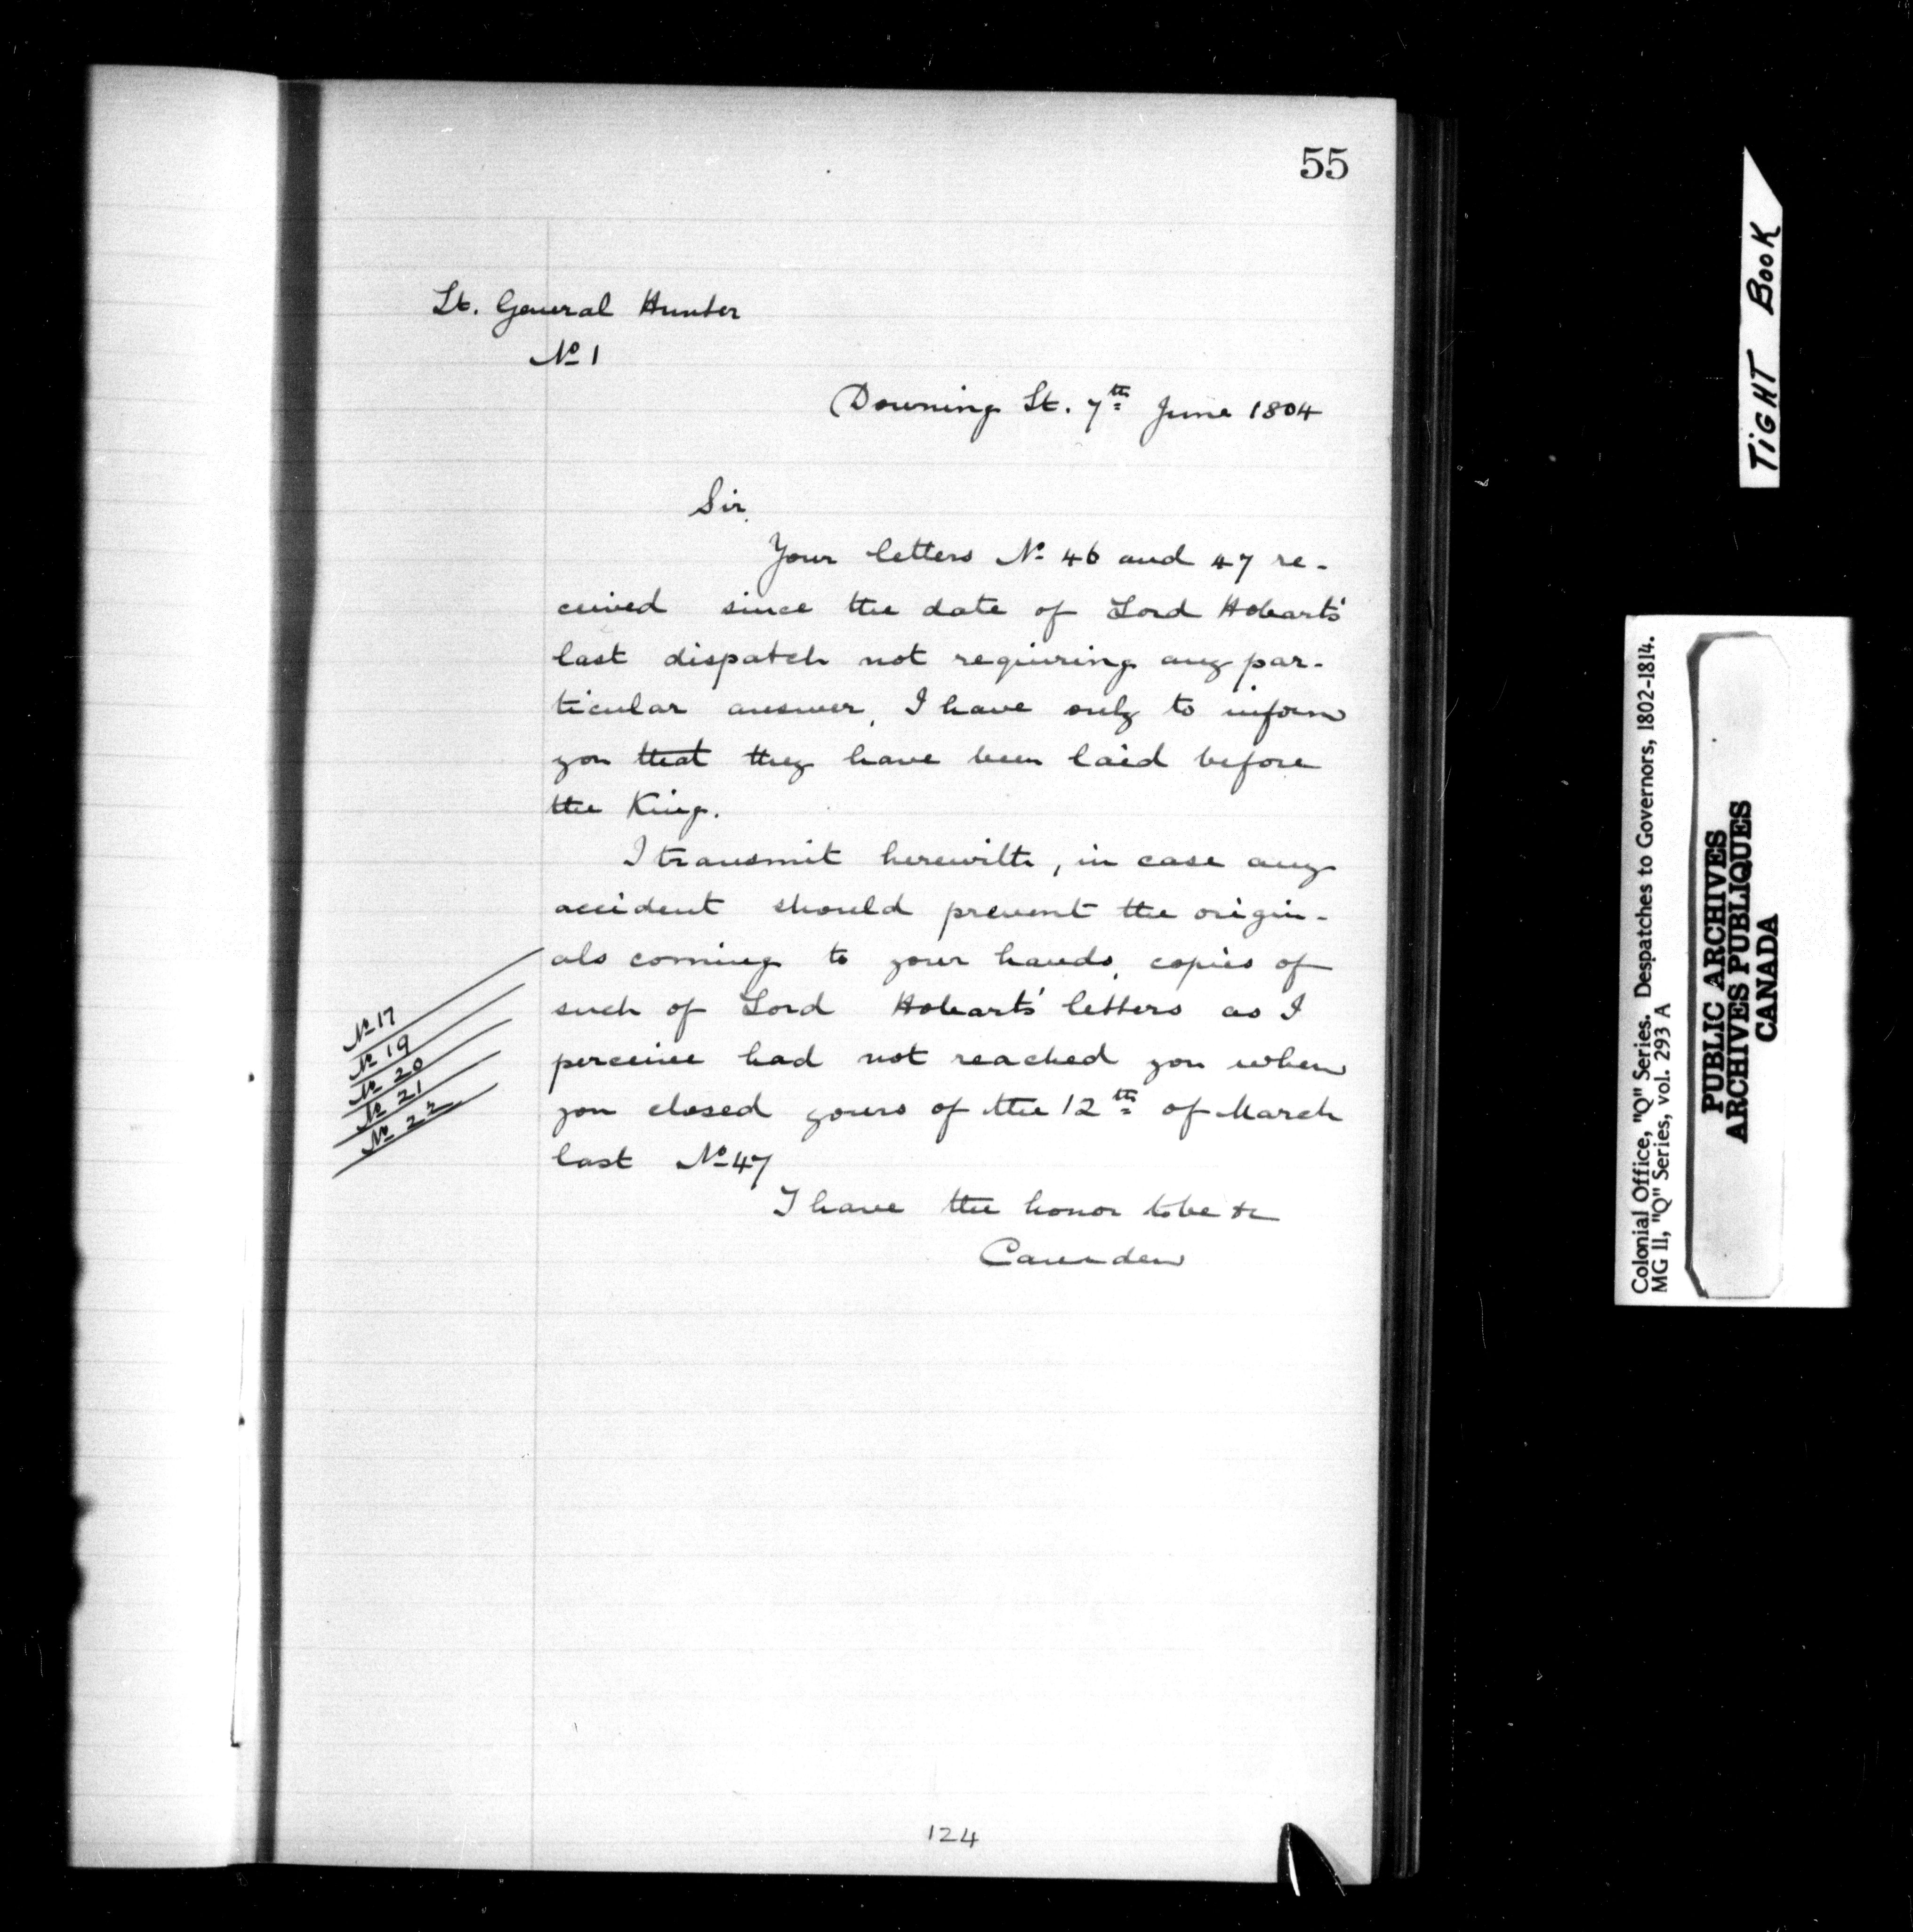 55
Lt. General Hunter
No 1
Downing St. 7th June 1804
Sir,
Your letters No 46 and 47 re-
ceived since the date of Lord Hobarts'
last dispatch not requiring any par-
ticular answer, I have only to inform
you that they have been laid before
the King.
I transmit herewith, in case any
accident should prevent the origin-
als coming to your hands, copies of
such of Lord Hobarts' letters as I
perceive had not reached you when
you closed yours of the 12th of March
last No 47
No 17
No 19
No 20
No 21
No 22
I have the honor to be &c
Camden
124
TIGHT BOOK
Colonial Office, "Q" Series. Despatches to Governors, 1802-1814.
MG 11, "Q" Series, vol. 293 A
PUBLIC ARCHIVES
ARCHIVES PUBLIQUES
CANADA